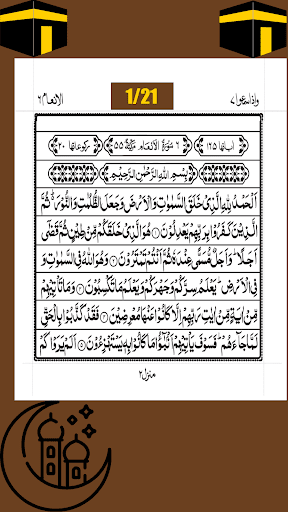 واذا سمعوا ٧
1/21
الانعام ٦
اٰیاتها ١٦٥
٦ سُوْرَةُ الْاَنْعَامِ مَكِّیَّةٌ ٥٥
رکوعاتها ٢٠
بِسْمِ اللهِ الرَّحْمٰنِ الرَّحِیْمِ
اَلْحَمْدُ لِلّٰهِ الَّذِیْ خَلَقَ السَّمٰوٰتِ وَالْاَرْضَ وَجَعَلَ الظُّلُمٰتِ وَالنُّوْرَ ؕ ثُمَّ
الَّذِیْنَ كَفَرُوْا بِرَبِّهِمْ یَعْدِلُوْنَ ۝ هُوَ الَّذِیْ خَلَقَكُمْ مِّنْ طِیْنٍ ثُمَّ قَضٰۤی
اَجَلًا ؕ وَاَجَلٌ مُّسَمًّی عِنْدَهٗ ثُمَّ اَنْتُمْ تَمْتَرُوْنَ ۝ وَهُوَ اللهُ فِی السَّمٰوٰتِ وَ
فِی الْاَرْضِ ؕ یَعْلَمُ سِرَّكُمْ وَجَهْرَكُمْ وَیَعْلَمُ مَا تَكْسِبُوْنَ ۝ وَمَا تَاْتِیْهِمْ
مِّنْ اٰیَةٍ مِّنْ اٰیٰتِ رَبِّهِمْ اِلَّا كَانُوْا عَنْهَا مُعْرِضِیْنَ ۝ فَقَدْ كَذَّبُوْا بِالْحَقِّ
لَمَّا جَآءَهُمْ ؕ فَسَوْفَ یَاْتِیْهِمْ اَنْۢبٰٓؤُا مَا كَانُوْا بِهٖ یَسْتَهْزِءُوْنَ ۝ اَلَمْ یَرَوْا كَمْ
منزل ٢